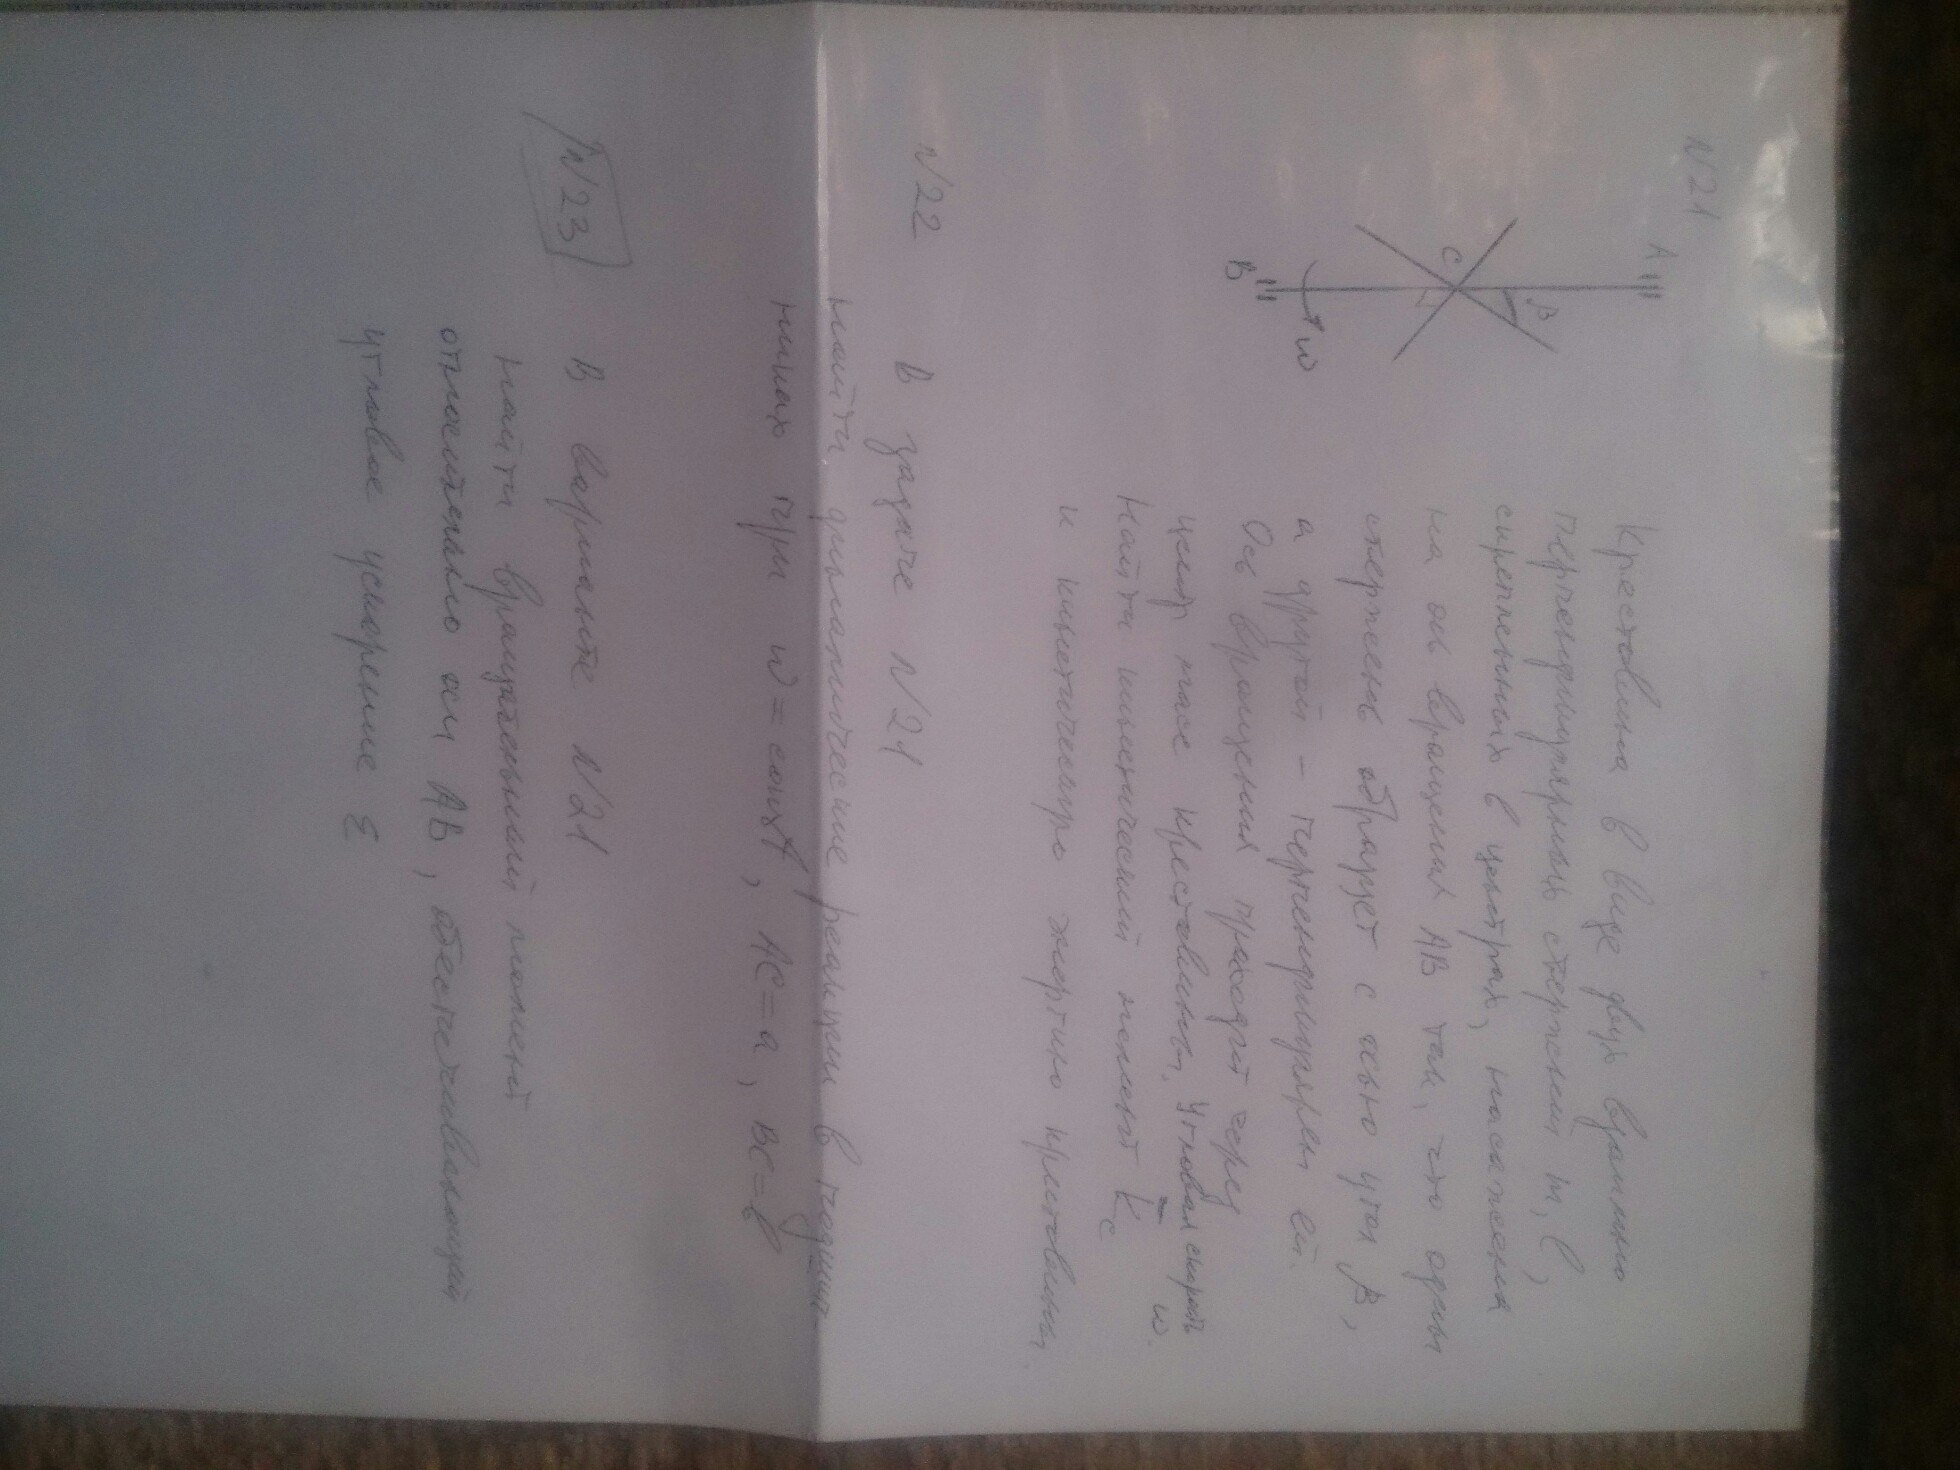 N21
A
β
C
B
ω
Крестовина в виде двух взаимно
перпендикулярных стержней m, l,
скрепленных в центрах, насажена
на ось вращения AB так, что один
стержень образует с осью угол β,
а другой - перпендикулярен ей.
Ось вращения проходит через
центр масс крестовины. Угловая скорость ω.
Найти кинетический момент K̅c
и кинетическую энергию крестовины.
N22 В задаче N21
найти динамические реакции в подшип
никах при ω = const, AC = a, BC = b
N23 В варианте N21
найти вращательный момент
относительно оси AB, обеспечивающий
угловое ускорение ε